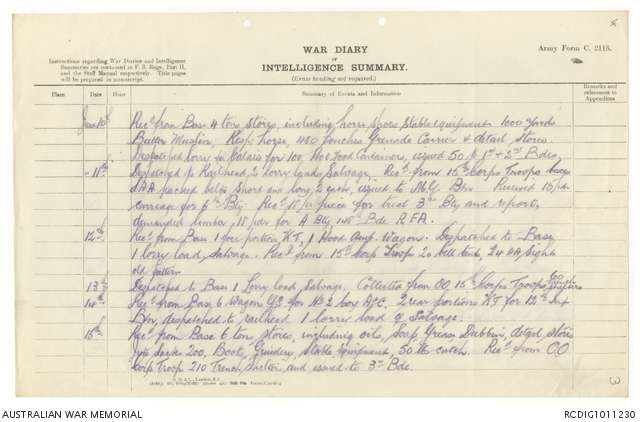 WAR DIARY
OF
INTELLIGENCE SUMMARY.
(Erase heading not required.)
Army Form C. 2118.
Instructions regarding War Diaries and Intelligence
Summaries are contained in F. S. Regs., Part II.
and the Staff Manual respectively. Title pages
will be prepared in manuscript.
Place Date Hour Summary of Events and Information Remarks and references to Appendices
Jan 10th Recd from Base 4 ton Stores, including horse shoes, Stable equipment 1000 yards
Butter Muslin, Rasp horse, 480 Pouches Grenade Carrier & detail stores.
Despatched lorry to Calais for 100 Hot Food Containers, issued 50 to 1st & 2nd Bdes
11th Despatched to Railhead 2 lorry loads Salvage. Recd from 15th Corps Troops
SAA packed belts Short and long, 2 each, issued to M.G. Received 18/pdr
carriage for 6th Bty Recd 18/pdr piece for 3rd Bty and report,
demanded 18/pdr for A Bty 148th Bde RFA.
12th Recd from Base 1 fore portion, 1 Hood Amb. Wagons. Despatched to Base
1 lorry load, Salvage. Recd from 15th Corp Troops 20 bell tents, 24 AA Sights
old pattern
13th Despatched to Base 1 Lorry load, Salvage. Collected from OO 15th Corps Troops 60
14th Recd from Base 6 Wagon GS for No 2 Coy ASC. 2 rear portions for 12th Inf
Bde, despatched to railhead 1 lorry load of Salvage.
15th Recd from Base 6 ton stores, including oils, Soap Grease, Dubbin, detail stores
jute sacks 200, Boots, Grindery, Stable Equipment, 50 lb. Recd from OO
Corp Troop 210 Trench and issued to 3rd Bde.
AUSTRALIAN WAR MEMORIAL
RCDIG1011230